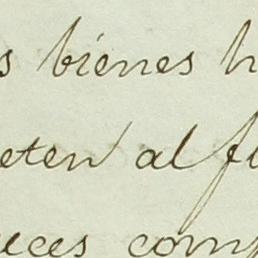 s bienes h
eten al fu
uces comp